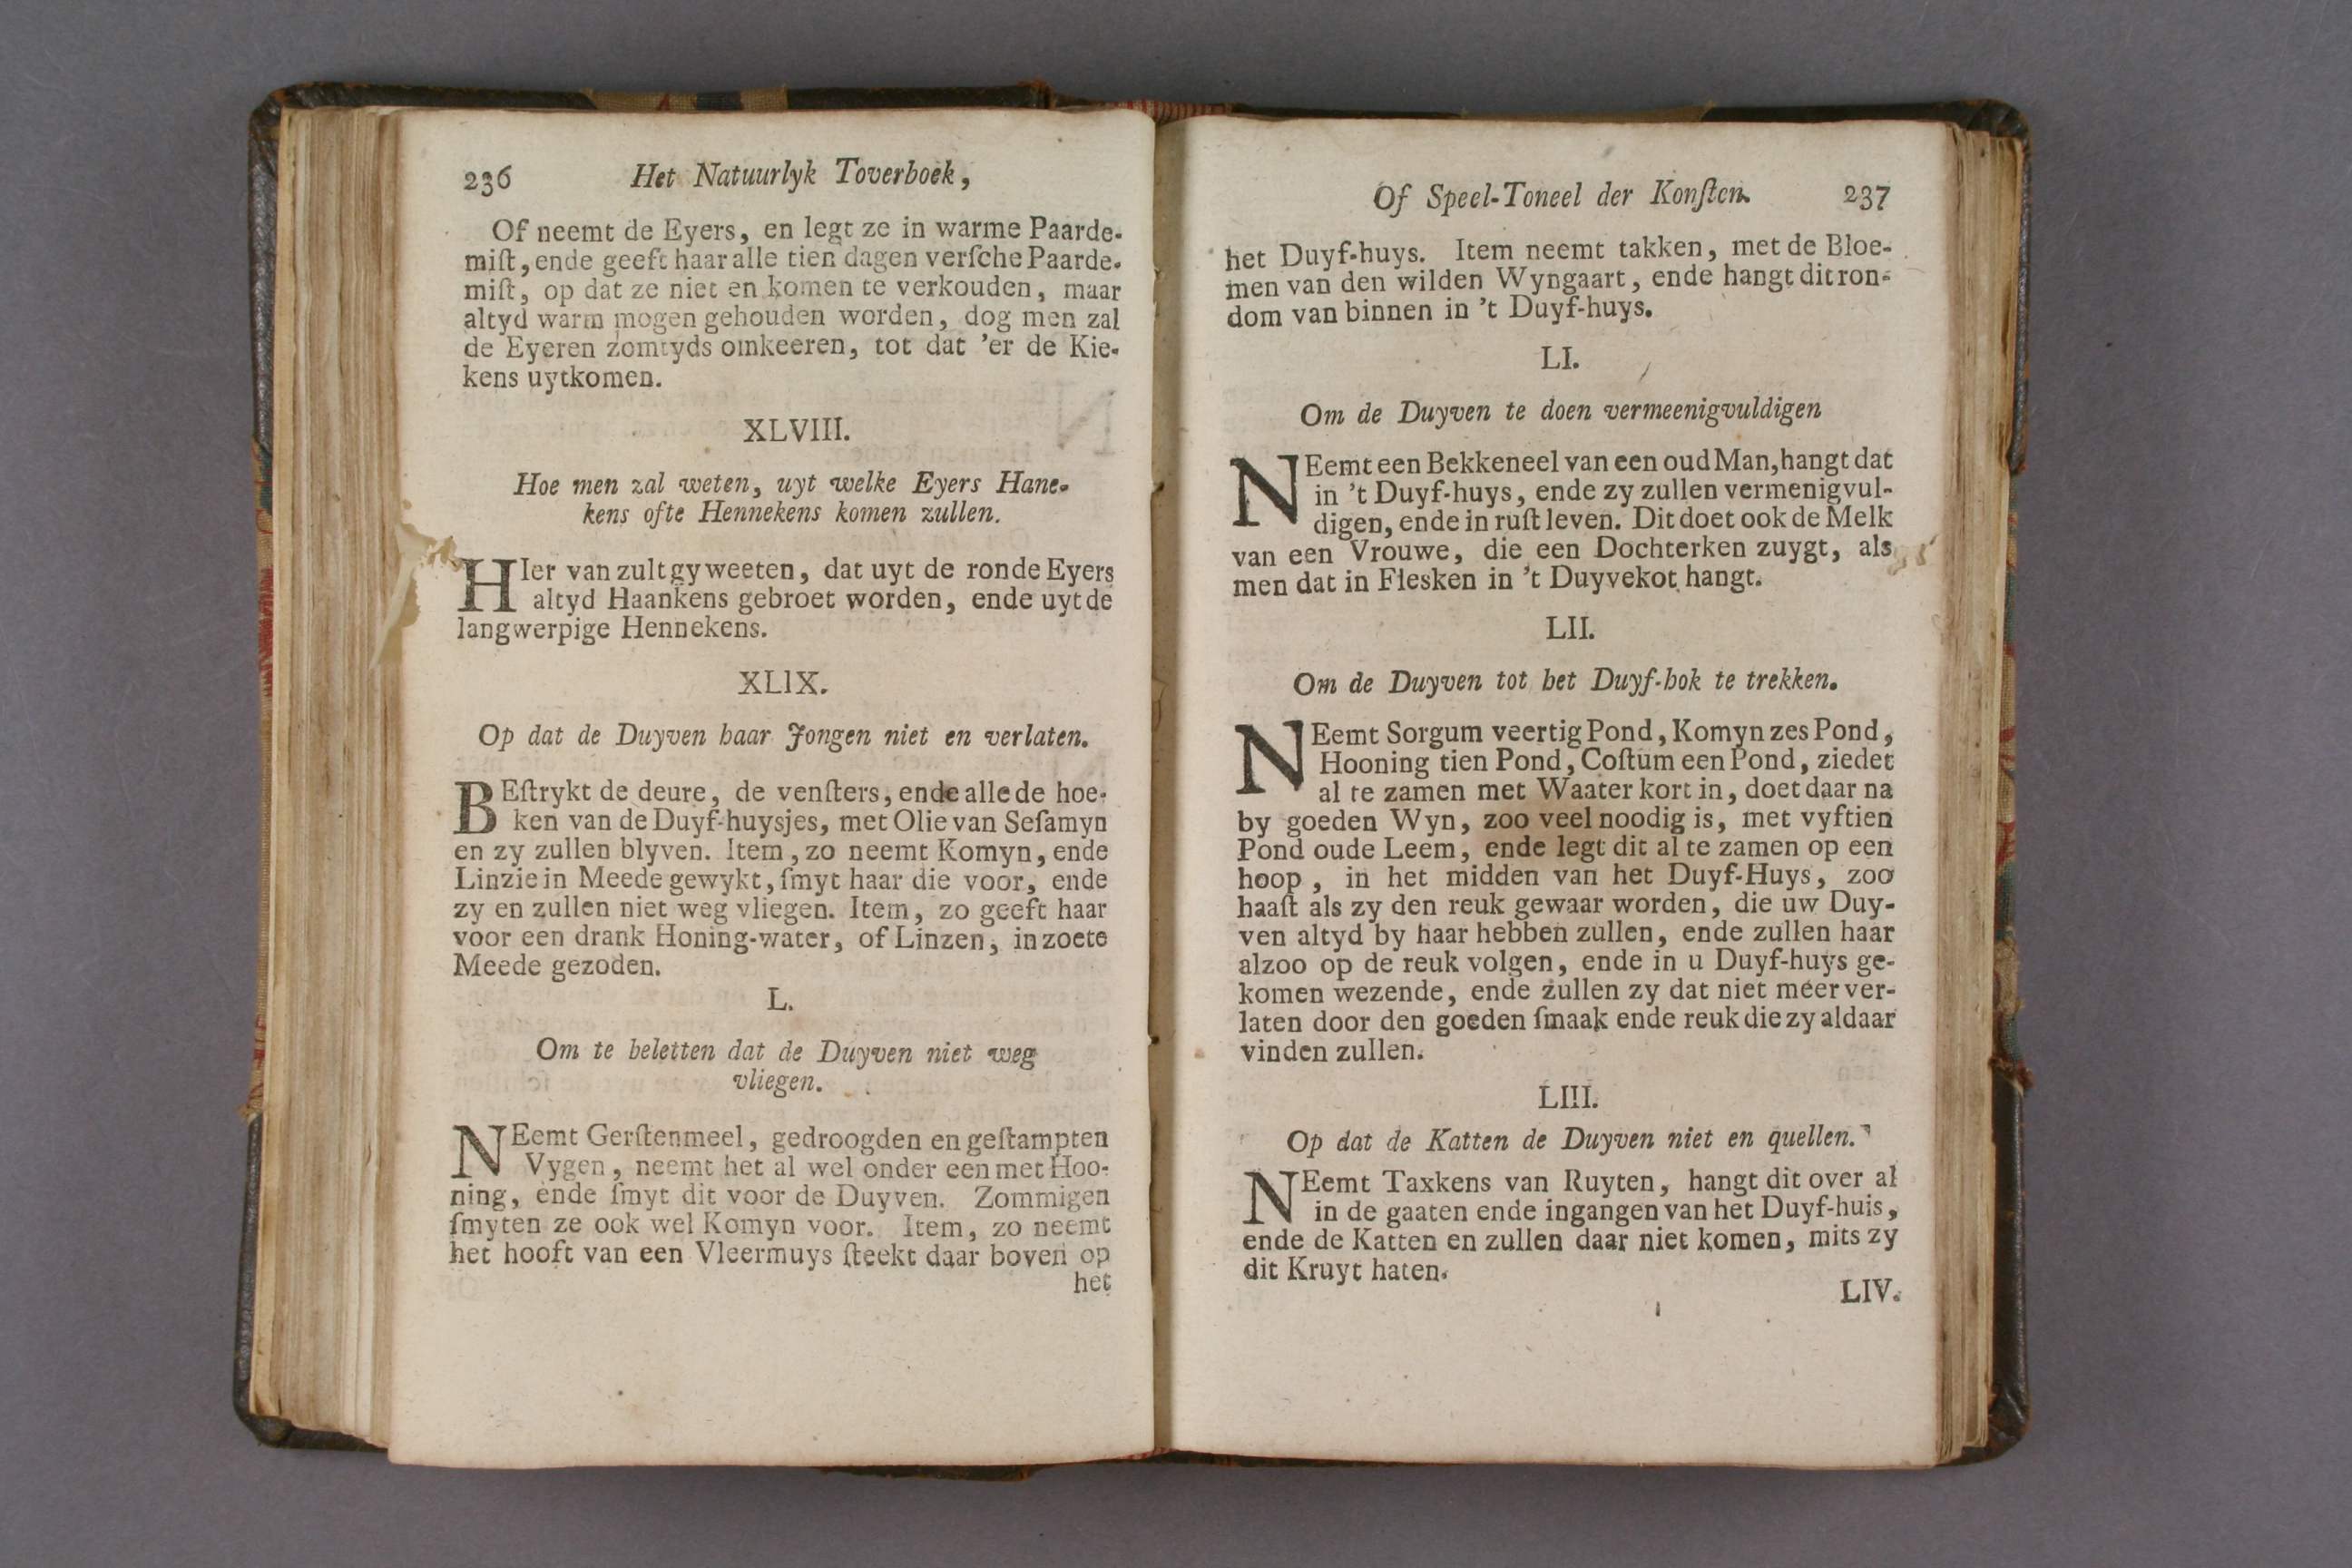 236 Het Natuurlyk Toverboek,
Of neemt de Eyers, en legt ze in warme Paarde-
miſt, ende geeft haar alle tien dagen verſche Paarde-
miſt, op dat ze niet en komen te verkouden, maar
altyd warm mogen gehouden worden, dog men zal
de Eyeren zomtyds omkeeren, tot dat 'er de Kie-
kens uytkomen.
XLVIII.
Hoe men zal weten, uyt welke Eyers Hane-
kens ofte Hennekens komen zullen.
HIer van zult gy weeten, dat uyt de ronde Eyers
altyd Haankens gebroet worden, ende uyt de
langwerpige Hennekens.
XLIX.
Op dat de Duyven haar Jongen niet en verlaten.
BEſtrykt de deure, de venſters, ende alle de hoe-
ken van de Duyf-huysjes, met Olie van Seſamyn
en zy zullen blyven. Item, zo neemt Komyn, ende
Linzie in Meede gewykt, ſmyt haar die voor, ende
zy en zullen niet weg vliegen. Item, zo geeft haar
voor een drank Honing-water, of Linzen, in zoete
Meede gezoden.
L.
Om te beletten dat de Duyven niet weg
vliegen.
NEemt Gerſtenmeel, gedroogden en geſtampten
Vygen, neemt het al wel onder een met Hoo-
ning, ende ſmyt dit voor de Duyven. Zommigen
ſmyten ze ook wel Komyn voor. Item, zo neemt
het hooft van een Vleermuys ſteekt daar boven op
het
Of Speel-Toneel der Konſten. 237
het Duyf-huys. Item neemt takken, met de Bloe-
men van den wilden Wyngaart, ende hangt dit ron-
dom van binnen in 't Duyf-huys.
LI.
Om de Duyven te doen vermeenigvuldigen
NEemt een Bekkeneel van een oud Man, hangt dat
in 't Duyf-huys, ende zy zullen vermenigvul-
digen, ende in ruſt leven. Dit doet ook de Melk
van een Vrouwe, die een Dochterken zuygt, als
men dat in Flesken in 't Duyvekot hangt.
LII.
Om de Duyven tot het Duyf-hok te trekken.
NEemt Sorgum veertig Pond, Komyn zes Pond,
Hooning tien Pond, Coſtum een Pond, ziedet
al te zamen met Waater kort in, doet daar na
by goeden Wyn, zoo veel noodig is, met vyftien
Pond oude Leem, ende legt dit al te zamen op een
hoop, in het midden van het Duyf-Huys, zoo
haaſt als zy den reuk gewaar worden, die uw Duy-
ven altyd by haar hebben zullen, ende zullen haar
alzoo op de reuk volgen, ende in u Duyf-huys ge-
komen wezende, ende zullen zy dat niet meer ver-
laten door den goeden ſmaak ende reuk die zy aldaar
vinden zullen.
LIII.
Op dat de Katten de Duyven niet en quellen.
NEemt Taxkens van Ruyten, hangt dit over al
in de gaaten ende ingangen van het Duyf-huis,
ende de Katten en zullen daar niet komen, mits zy
dit Kruyt haten.
LIV.